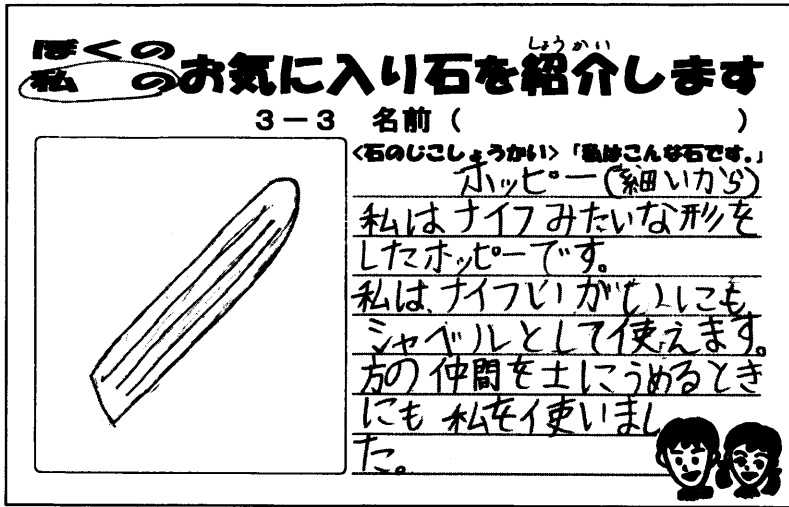 ぼくの
私 のお気に入り石を紹介します
しょうかい
3-3 名前( )
<石のじこしょうかい>「私はこんな石です。」
ホッピー(細いから)
私はナイフみたいな形を
したホッピーです。
私は、ナイフいがいにも
シャベルとして使えます。
方の仲間を土にうめるとき
にも私を使いまし
た。